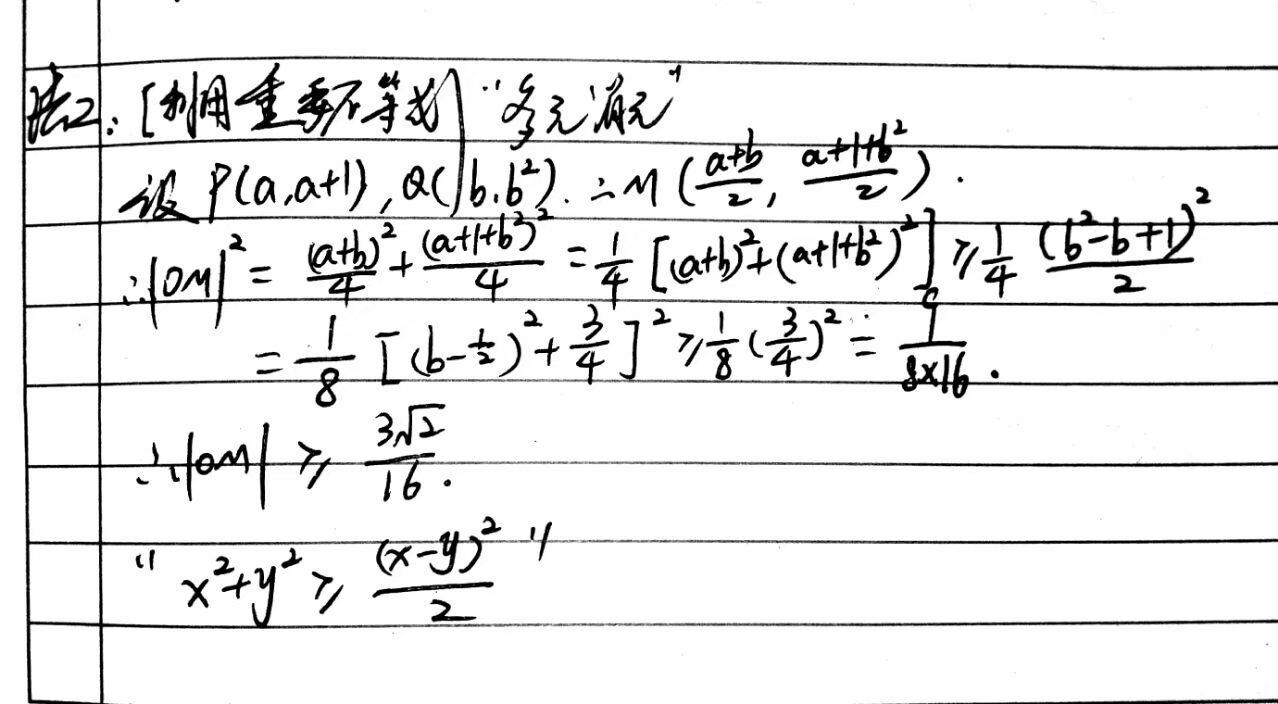 法2:[利用重要不等式]"多元消元"
设 P(a,a+1), Q(b,b²). ∴M (\frac{a+b}{2}, \frac{a+1+b²}{2}).
∴|OM|² = \frac{(a+b)²}{4} + \frac{(a+1+b²)²}{4} = \frac{1}{4} [(a+b)²+(a+1+b²)²] ≥ \frac{1}{4} \frac{(b²-b+1)²}{2}
= \frac{1}{8} [(b-\frac{1}{2})²+\frac{3}{4}]² ≥ \frac{1}{8}(\frac{3}{4})² = \frac{9}{8×16}.
∴|OM| ≥ \frac{3\sqrt{2}}{16}.
"x²+y² ≥ \frac{(x-y)²}{2}"